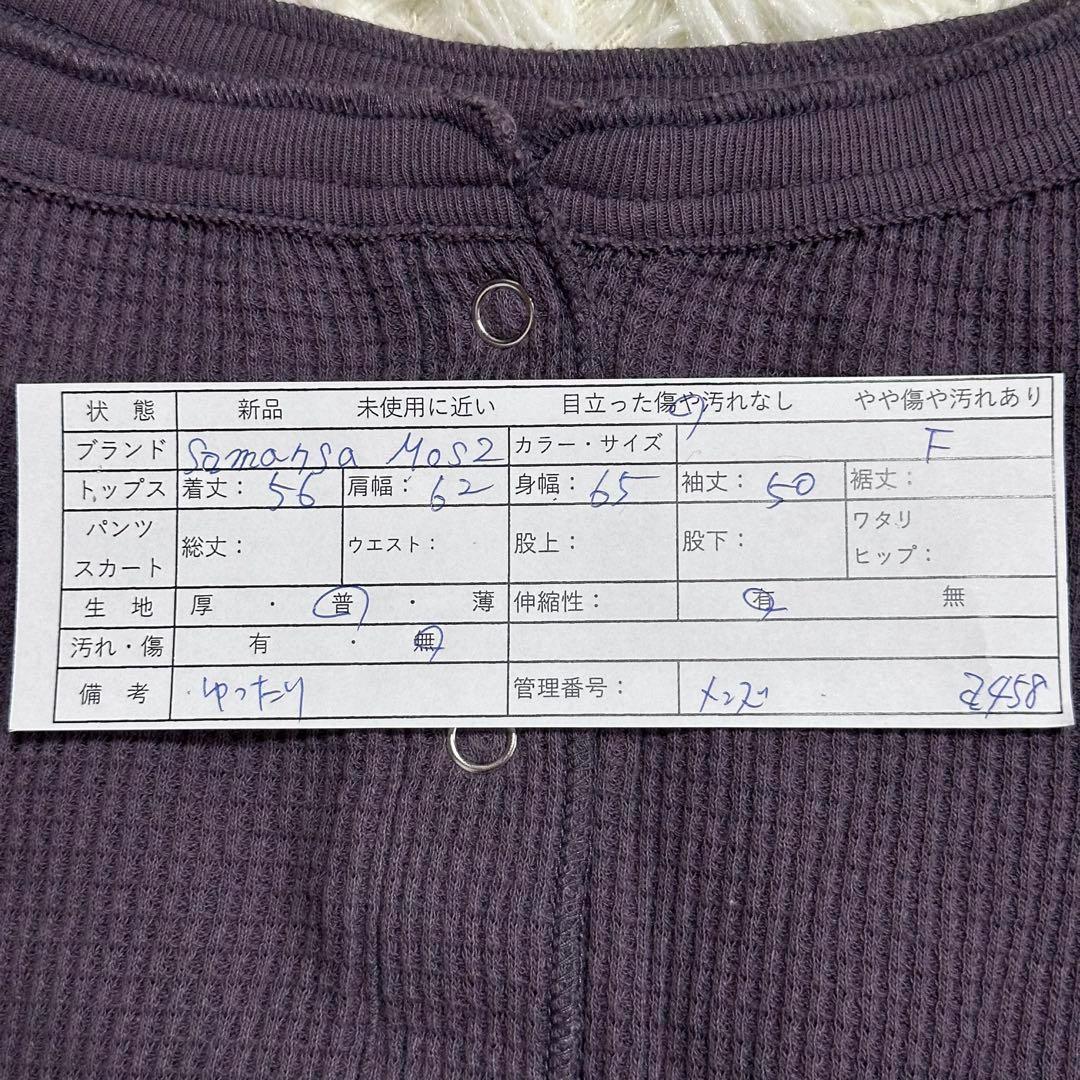 状態 新品 未使用に近い 目立った傷や汚れなし やや傷や汚れあり
ブランド Samansa Mos2 カラー・サイズ F
トップス 着丈: 56 肩幅: 62 身幅: 65 袖丈: 50 裾丈:
パンツ スカート 総丈: ウエスト: 股上: 股下: ワタリ ヒップ:
生地 厚 ・ 普 ・ 薄 伸縮性: 有 無
汚れ・傷 有 ・ 無
備考 ゆったり 管理番号: a458